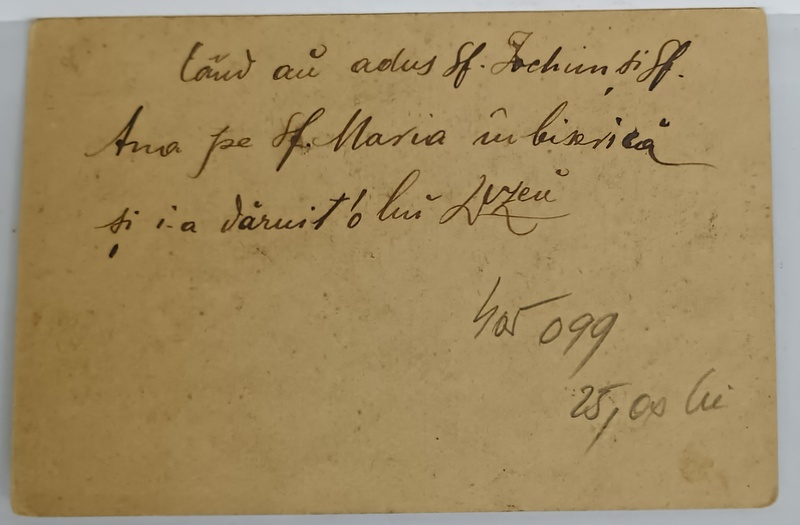 Când aŭ adus Sf. Iochim, și Sf.
Ana pe Sf. Maria în biserică
și i-a dăruit'o luĭ Dzeŭ
405 099
25,00 lei